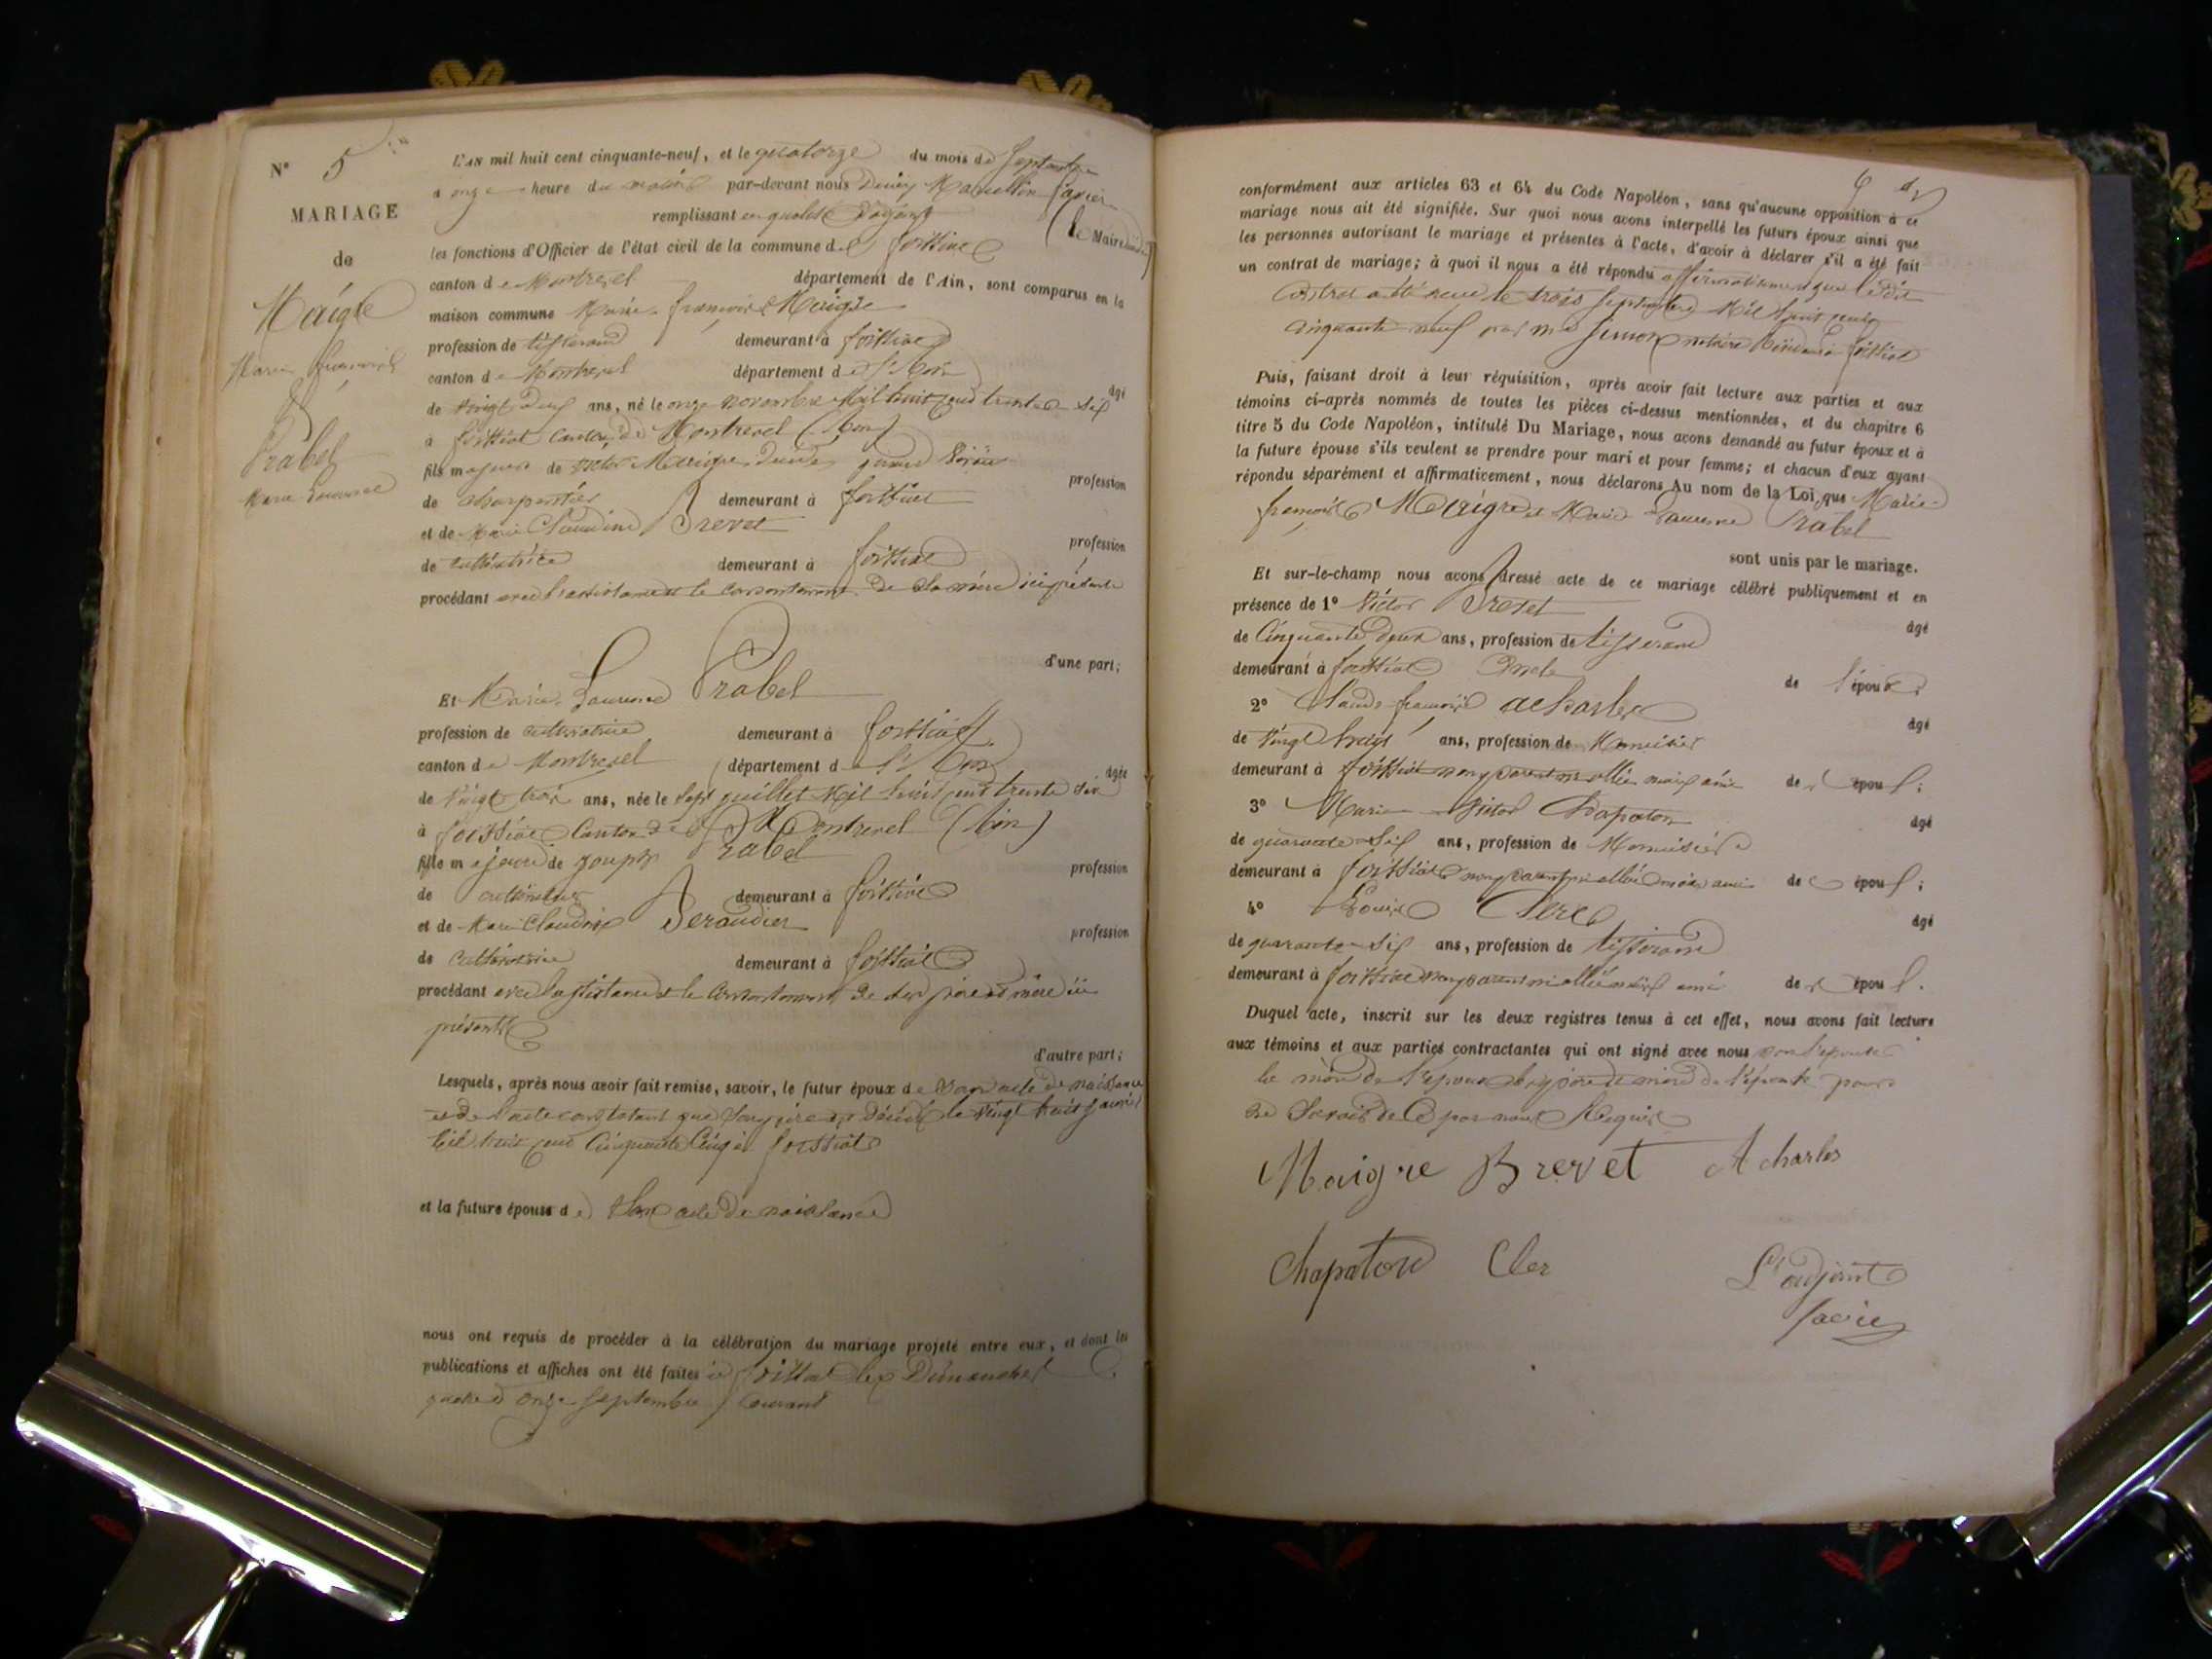 N° 5
MARIAGE
de
Maigre
Marie françois
&
Prabel
Marie Laurence
L'AN mil huit cent cinquante-neuf, et le quatorze du mois de Septembre
à onze heure du matin par-devant nous Denis Marcellin
remplissant en qualité d'adjoint (le Maire
les fonctions d'Officier de l'état civil de la commune de foissiat
canton de Montrevel département de l'Ain, sont comparus en la
maison commune Marie françois Maigre
profession de tisserand demeurant à foissiat
canton de Montrevel département de l'Ain âgé
de vingt deux ans, né le onze novembre mil huit cent trente six
à foissiat canton de Montrevel (Ain)
fils majeur de Victor Maigre décédé quand vivait profession
de charpentier demeurant à foissiat
et de Marie Claudine Brevet profession
de cultivatrice demeurant à foissiat
procédant avec l'assistance et le consentement de sa mère ici présente
d'une part;
Et Marie Laurence Prabel
profession de cultivatrice demeurant à foissiat
canton de Montrevel département de l'Ain âgée
de vingt trois ans, née le sept juillet mil huit cent trente six
à foissiat canton de Montrevel (Ain)
fille majeure de Joseph Prabel profession
de cultivateur demeurant à foissiat
et de Marie Claudine Beraudier profession
de cultivatrice demeurant à foissiat
procédant avec l'assistance et le consentement de ses père et mère ici
présents
d'autre part;
Lesquels, après nous avoir fait remise, savoir, le futur époux de son acte de naissance
et de l'acte constatant que son père est décédé le vingt huit janvier
mil huit cent cinquante cinq à foissiat
et la future épouse de son acte de naissance
nous ont requis de procéder à la célébration du mariage projeté entre eux, et dont les
publications et affiches ont été faites à foissiat les Dimanches
quatre et onze septembre courant
conformément aux articles 63 et 64 du Code Napoléon, sans qu'aucune opposition à ce
mariage nous ait été signifiée. Sur quoi nous avons interpellé les futurs époux ainsi que
les personnes autorisant le mariage et présentes à l'acte, d'avoir à déclarer s'il a été fait
un contrat de mariage; à quoi il nous a été répondu affirmativement que ledit
contrat a été reçu le trois septembre mil huit cent
cinquante neuf par me Simon notaire à foissiat
Puis, faisant droit à leur réquisition, après avoir fait lecture aux parties et aux
témoins ci-après nommés de toutes les pièces ci-dessus mentionnées, et du chapitre 6
titre 5 du Code Napoléon, intitulé Du Mariage, nous avons demandé au futur époux et à
la future épouse s'ils veulent se prendre pour mari et pour femme; et chacun d'eux ayant
répondu séparément et affirmativement, nous déclarons Au nom de la Loi, que Marie
françois Maigre et Marie Laurence Prabel
sont unis par le mariage.
Et sur-le-champ nous avons dressé acte de ce mariage célébré publiquement et en
présence de 1° Victor Brevet âgé
de cinquante deux ans, profession de tisserand
demeurant à foissiat oncle de l'époux;
2° Claude françois acharles âgé
de vingt huit ans, profession de Menuisier
demeurant à foissiat non parent ni allié mais ami des époux;
3° Marie Victor Chapaton âgé
de quarante six ans, profession de Menuisier
demeurant à foissiat non parent ni allié mais ami des époux;
4° Louis Clerc âgé
de quarante six ans, profession de tisserand
demeurant à foissiat non parent ni allié mais ami des époux.
Duquel acte, inscrit sur les deux registres tenus à cet effet, nous avons fait lecture
aux témoins et aux parties contractantes qui ont signé avec nous non l'épouse
la mère de l'époux les père et mère de l'épouse pour
ne savoir de ce par nous Requis
Maigre Brevet Acharles
Chapaton Cler L'adjoint